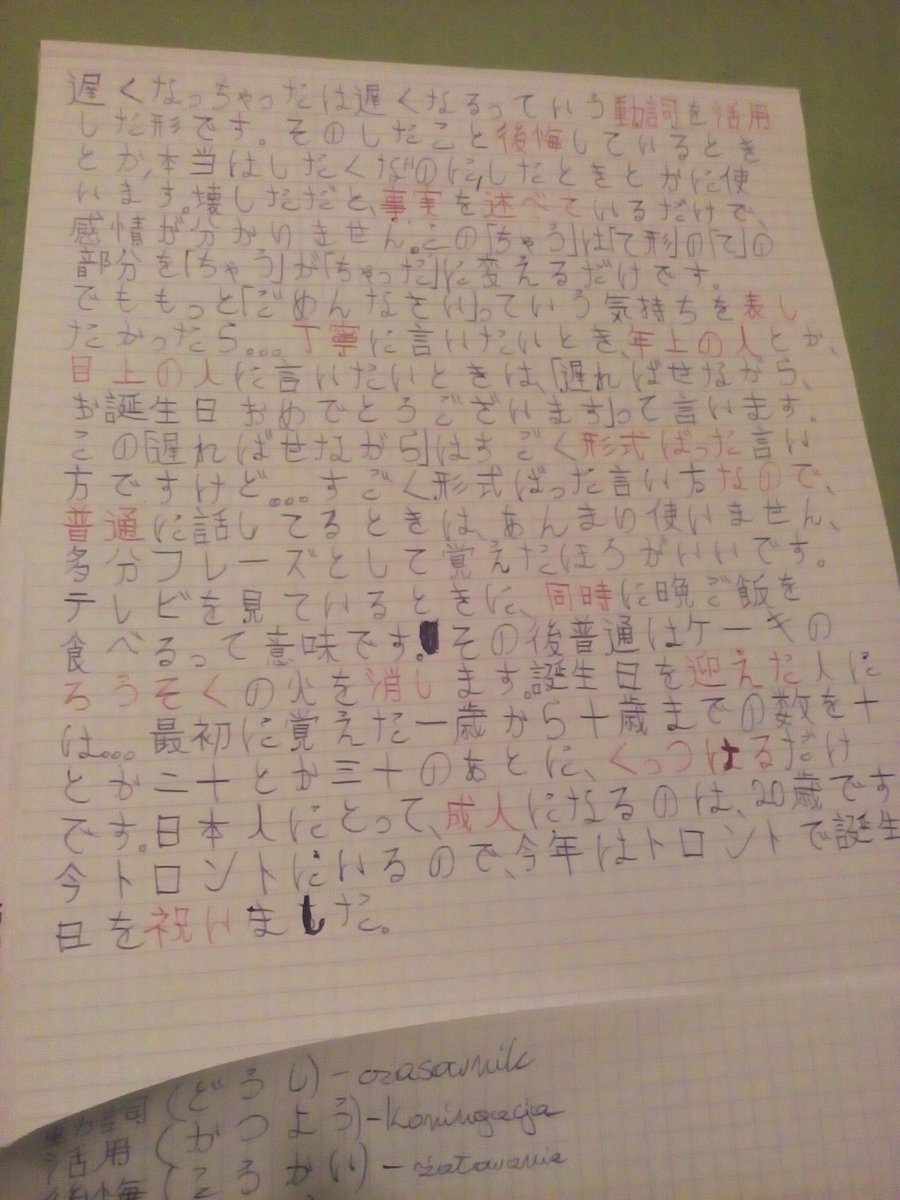 遅くなっちゃったは遅くなるっていう動詞を活用
した形です。そのしたこと後悔しているとき
とか、本当はしたくないのに、したときとかに使
います。壊しただと、事実を述べているだけで、
感情が分かりません。この「ちゃう」は「て形」の「て」の
部分を「ちゃう」が「ちゃった」に変えるだけです。
でももっと「ごめんなさい」っていう気持ちを表し
たかったら...丁寧に言いたいとき、年上の人とか、
目上の人に言いたいときは、「遅ればせながら、
お誕生日おめでとうございます」って言います。
この「遅ればせながら」はすごく形式ばった言い
方ですけど...すごく形式ばった言い方なので、
普通に話してるときは、あんまり使いません、
多分フレーズとして覚えたほうがいいです。
テレビを見ているときに、同時に晩ご飯を
食べるって意味です。その後普通はケーキの
ろうそくの火を消します。誕生日を迎えた人に
は...最初に覚えた一歳から十歳までの数を十
とか二十とか三十のあとに、くっつけるだけ
です。日本人にとって、成人になるのは、20歳です
今トロントにいるので、今年はトロントで誕生
日を祝いました。
動詞(どうし)-czasownik
活用(かつよう)-koniugacja
後悔(こうかい)-żałowanie